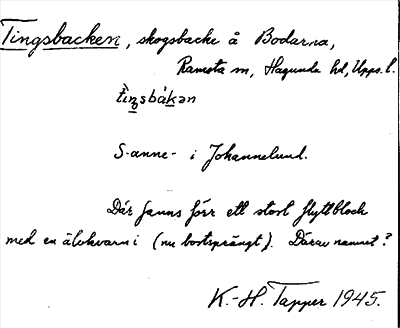 Tingsbacken, skogsbacke å Bodarna,
Ramsta sn, Hagunda hd, Upps. l.
tìŋsbákən
S-anne- i Johannelund.
Där fanns förr ett stort flyttblock
med en älvkvarn i (nu bortsprängt). Därav namnet?
K.-H. Tapper 1945.